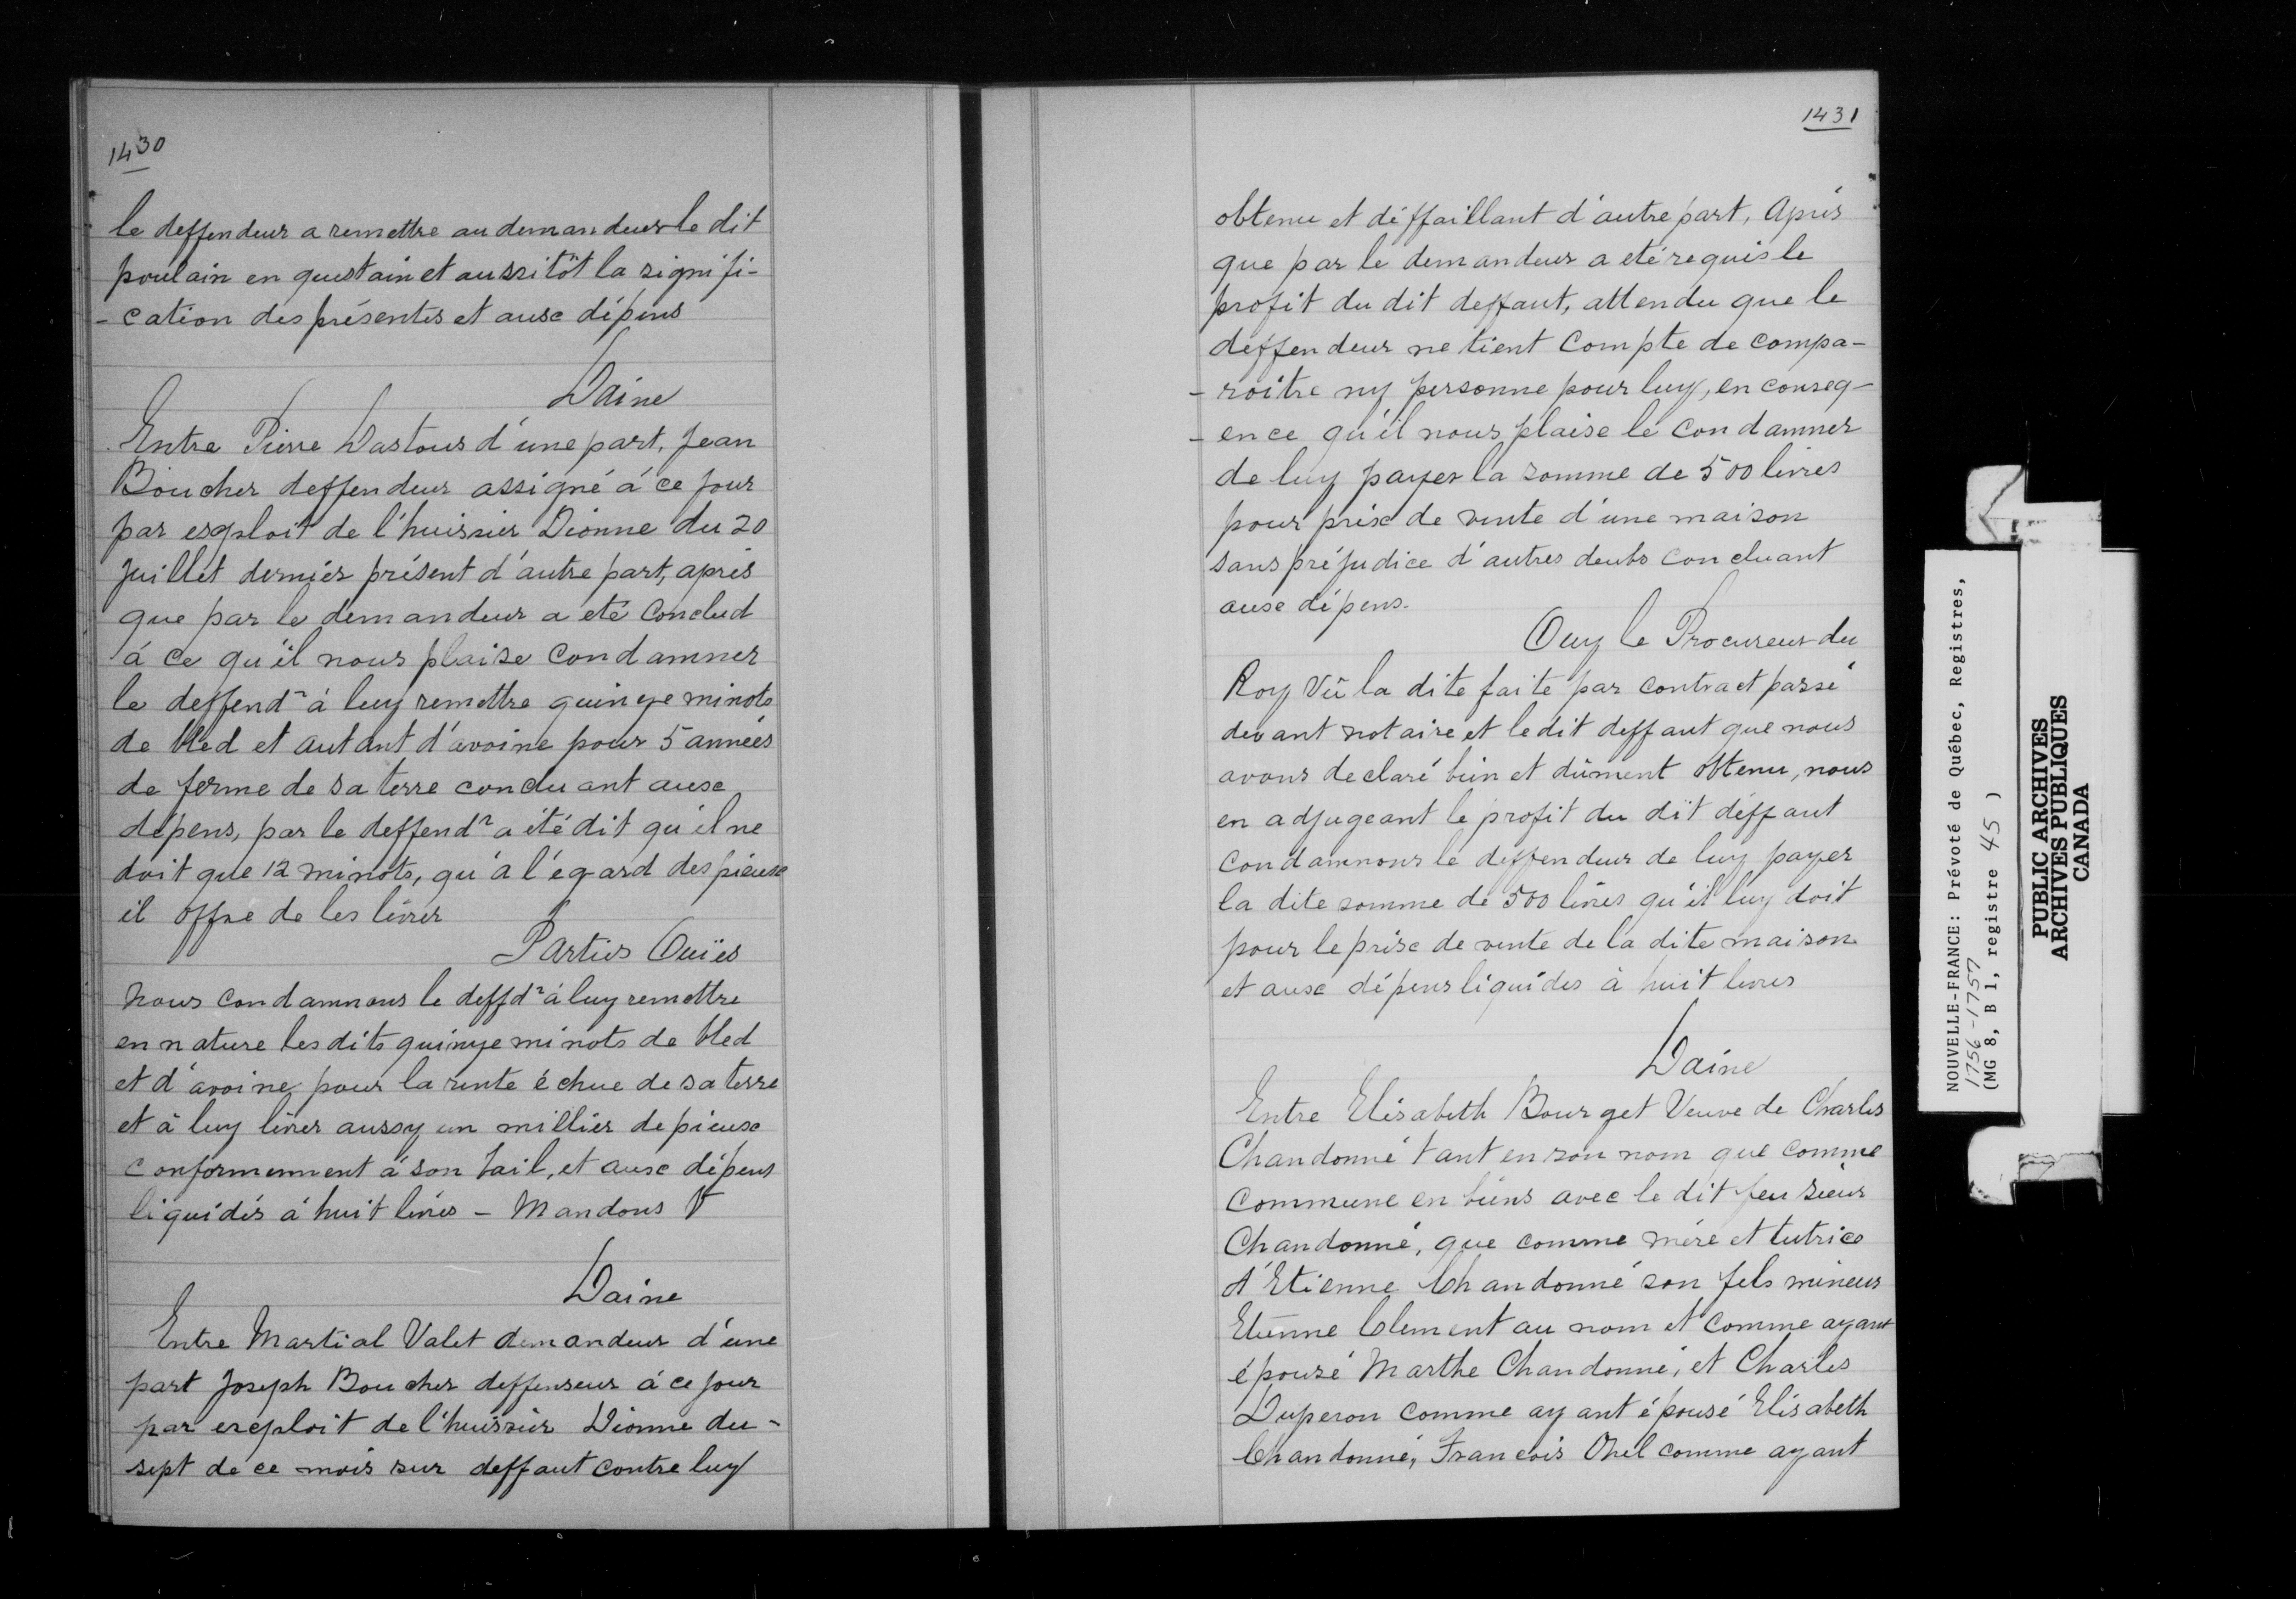 1430
le deffendeur a remettre au demandeur le dit
poulain en questain et aussitôt la signifi-
- cation des présentes et aux dépens
Daine
Entre Pierre Dastous d'une part, Jean
Boucher deffendeur assigné à ce jour
par exploit de l'huissier Dionne du 20
juillet dernier présent d'autre part, après
que par le demandeur a eté conclud
à ce qu'il nous plaise condamner
le deffendr à luy remettre quinze minots
de bled et autant d'avoine pour 5 années
de ferme de sa terre concluant aux
dépens, par le deffendr a été dit qu'il ne
doit que 12 minots, qu'à l'égard des pieux
il offre de les livrer
Parties Ouïes
nous condamnons le deffdr à luy remettre
en nature les dits quinze minots de bled
et d'avoine pour la rente échue de sa terre
et à luy livrer aussy un millier de pieux
conformement à son bail, et aux dépens
liquidés à huit livres - Mandons V
Daine
Entre Martial Valet demandeur d'une
part Joseph Boucher deffenseur à ce jour
par exploit de l'huissier Dionne du -
sept de ce mois sur deffaut contre luy
1431
obtenu et déffaillant d'autre part, Après
que par le demandeur a eté requis le
profit du dit deffaut, attendu que le
deffendeur ne tient compte de compa-
- roitre ny personne pour luy, en conseq-
- ence qu'il nous plaise le condamner
de luy payer la somme de 500 livres
pour prix de vente d'une maison
sans préjudice d'autres deubs concluant
aux dépens.
Ouy le Procureur du
Roy Vû la dite faite par contract passé
devant notaire et le dit deffaut que nous
avons declaré bien et dûment obtenu, nous
en adjugeant le profit du dit déffaut
condamnons le deffendeur de luy payer
la dite somme de 500 livres qu'il luy doit
pour le prix de vente de la dite maison
et aux dépens liquidés à huit livres
Daine
Entre Elisabeth Bourget Veuve de Charles
Chandonné tant en son nom que comme
commune en biens avec le dit feu sieur
Chandonné, que comme mère et tutrice
d'Etienne Chandonné son fils mineur
Etienne Clement au nom et comme ayant
épousé Marthe Chandonné, et Charles
Duperon comme ayant épousé Elisabeth
Chandonné, Francois Ohel comme ayant
NOUVELLE-FRANCE: Prévoté de Québec, Registres,
1756-1757
(MG 8, B 1, registre 45 )
PUBLIC ARCHIVES
ARCHIVES PUBLIQUES
CANADA